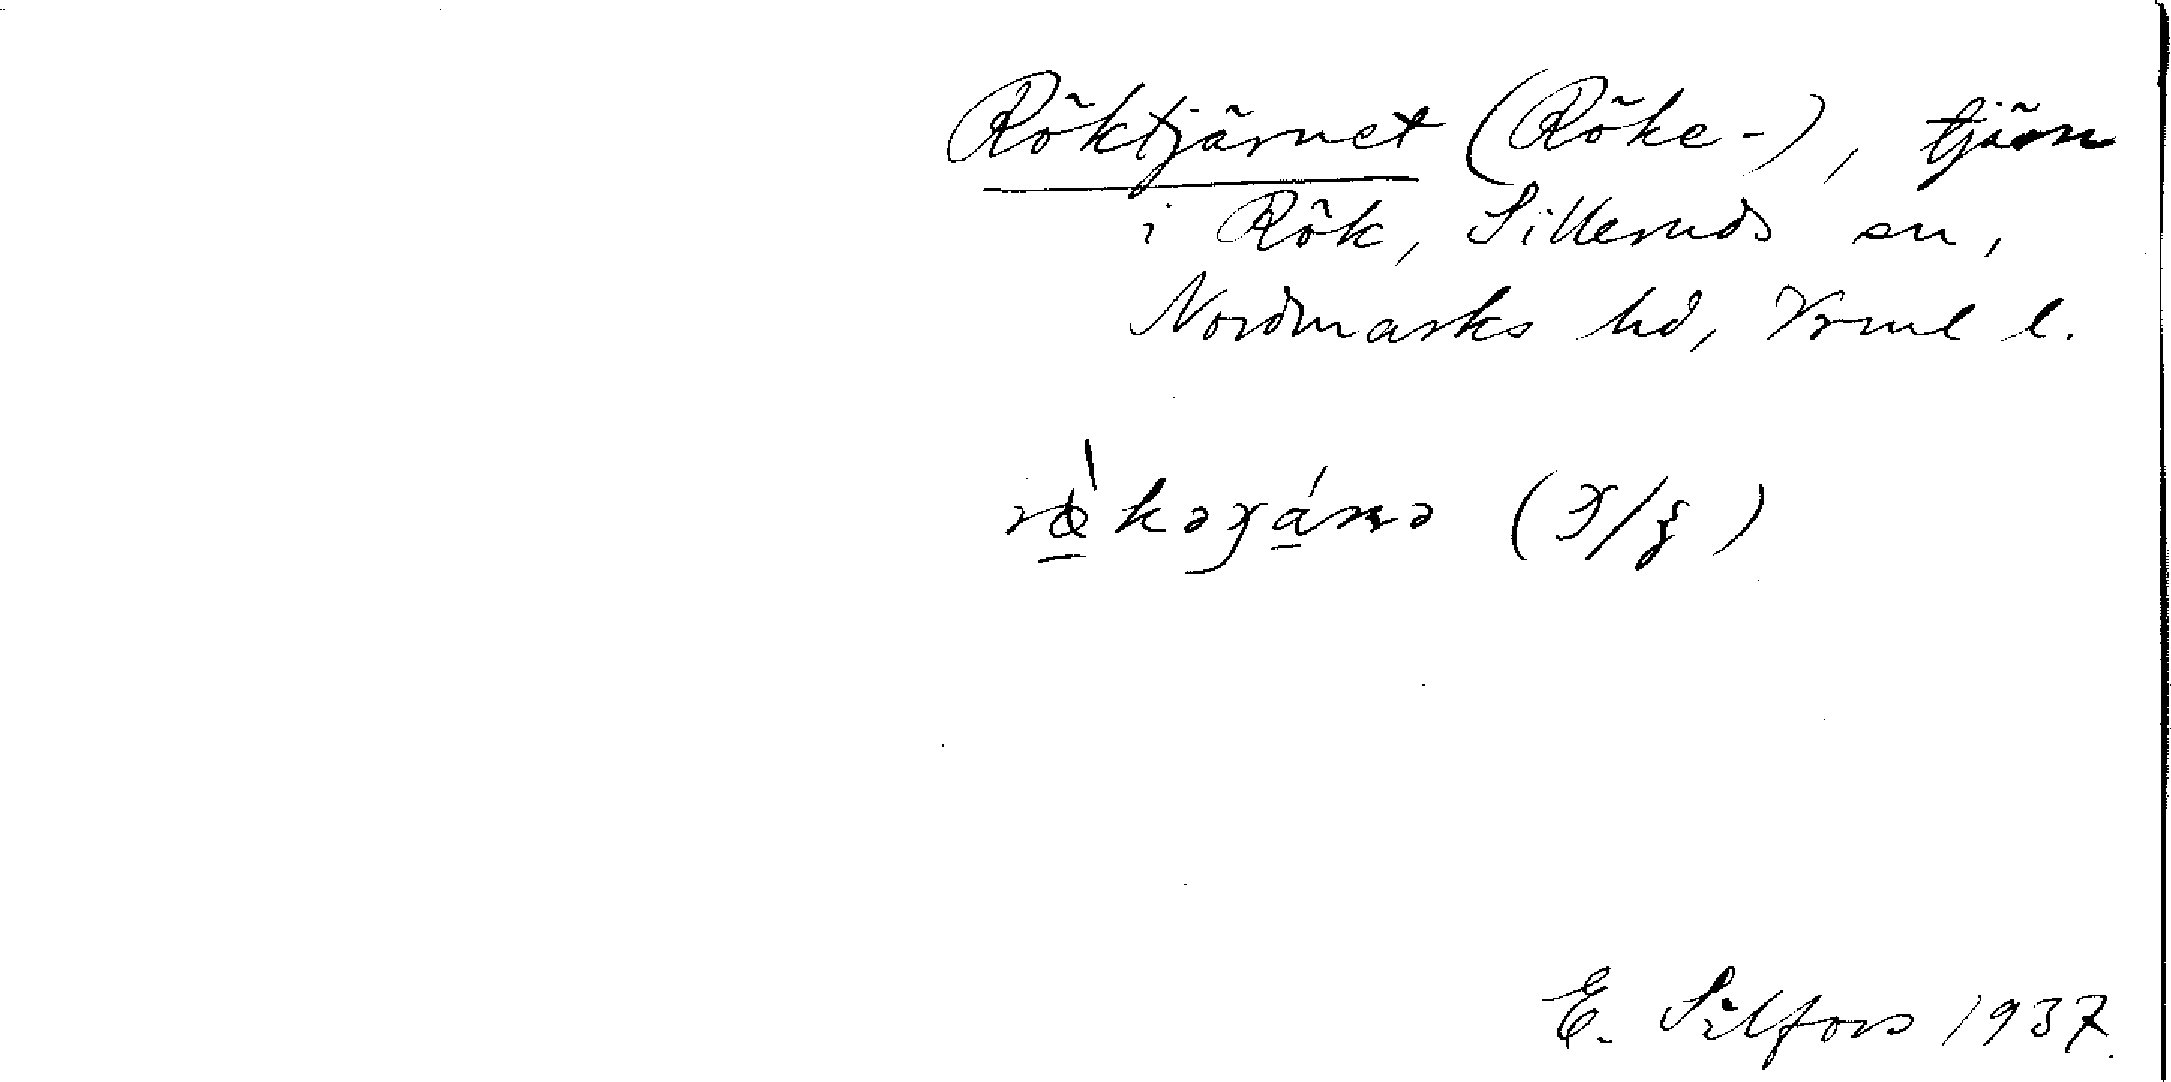 Röktjärnet (Röke-), tjärn
i Rök, Silleruds sn,
Nordmarks hd, Vrml l.
E. Silfors 1937.